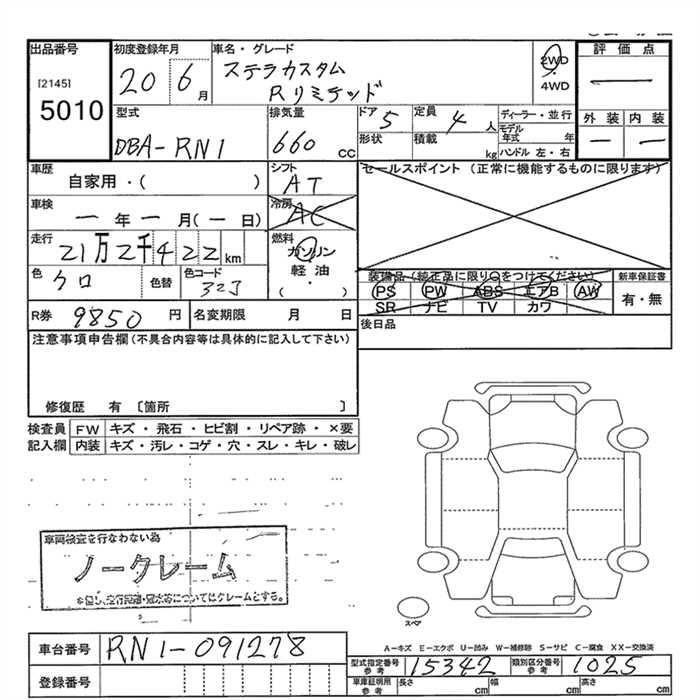 出品番号
[2145]
5010
初度登録年月
20 6月
車名・グレード
ステラカスタム
Rリミテッド
2WD
・
4WD
評価点
―
外装 内装
― ―
型式
DBA-RN1
排気量
660 cc
ドア
5
形状
定員
4人
積載
kg
ディーラー・並行
モデル年式 年
ハンドル 左・右
車歴
自家用・( )
シフト
AT
車検
一年一月(一日)
冷房
AC
走行
21万2千422km
燃料
ガソリン
軽油
・
( )
色
クロ
色替
色コード
32J
セールスポイント (正常に機能するものに限ります)
装備品(純正品に限り○をつけてください)
PS PW ABS エアB AW
SR ナビ TV カワ
新車保証書
有・無
R券 9850円
名変期限 月 日
後日品
注意事項申告欄(不具合内容等は具体的に記入して下さい)
修復歴 有 〔箇所 〕
検査員 FW キズ・飛石・ヒビ割・リペア跡・×要
記入欄 内装 キズ・汚レ・コゲ・穴・スレ・キレ・破レ
車両検査を行なわない為
ノークレーム
スペア
A－キズ E－エクボ U－凹み W－補修跡 S－サビ C－腐食 XX－交換済
車台番号 RN1-091278
登録番号
型式指定番号 参考 15342
類別区分番号 参考 1025
車庫証明用 参考 長さ cm 幅 cm 高さ cm